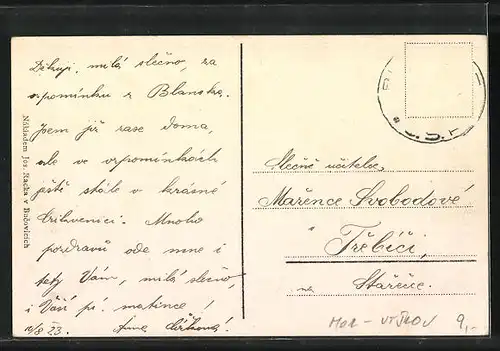 Děkuji, milá slečno, za
vzpomínku z Blanska.
Jsem již zase doma,
ale ve vzpomínkách
ještě stále v krásné
Crikvenici. Mnoho
pozdravů ode mne i
tety Vám, milá slečno,
i Vaší pí. matince!
Nákladem Jos. Racka v Budovicích
Slečně učitelce
Mařence Svobodové
Třebíči,
na
Stařeče.
9,-